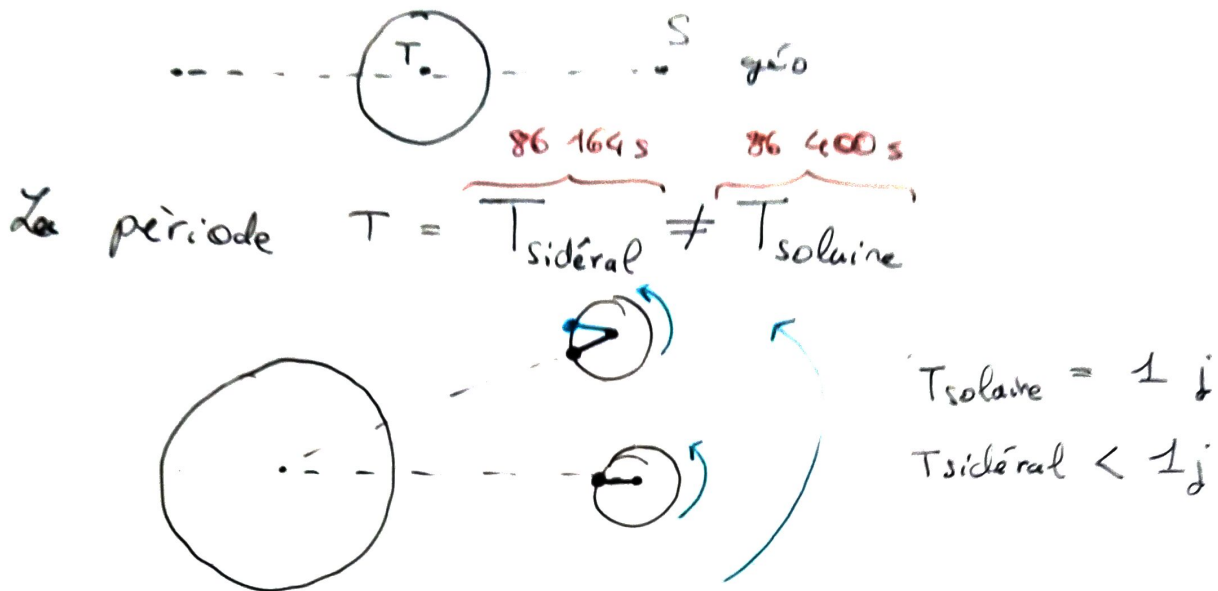 S
T géo
86 164 s 86 400 s
La période T = T sidéral ≠ T solaire
T solaire = 1 j
T sidéral < 1 j